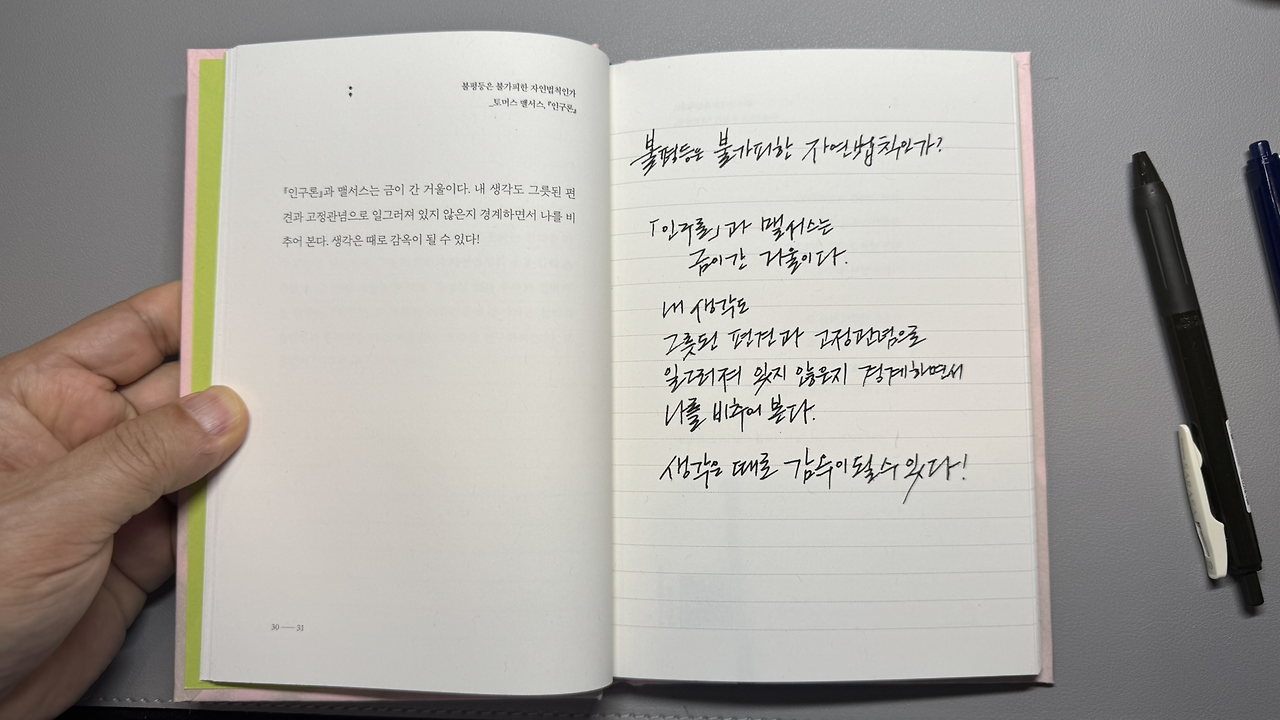 불평등은 불가피한 자연법칙인가
_토머스 맬서스, 『인구론』
『인구론』과 맬서스는 금이 간 거울이다. 내 생각도 그릇된 편
견과 고정관념으로 일그러져 있지 않은지 경계하면서 나를 비
추어 본다. 생각은 때로 감옥이 될 수 있다!
30 — 31
불평등은 불가피한 자연법칙인가?
「인구론」과 맬서스는
금이 간 거울이다.
내 생각도
그릇된 편견과 고정관념으로
일그러져 있지 않은지 경계하면서
나를 비추어 본다.
생각은 때로 감옥이 될 수 있다!